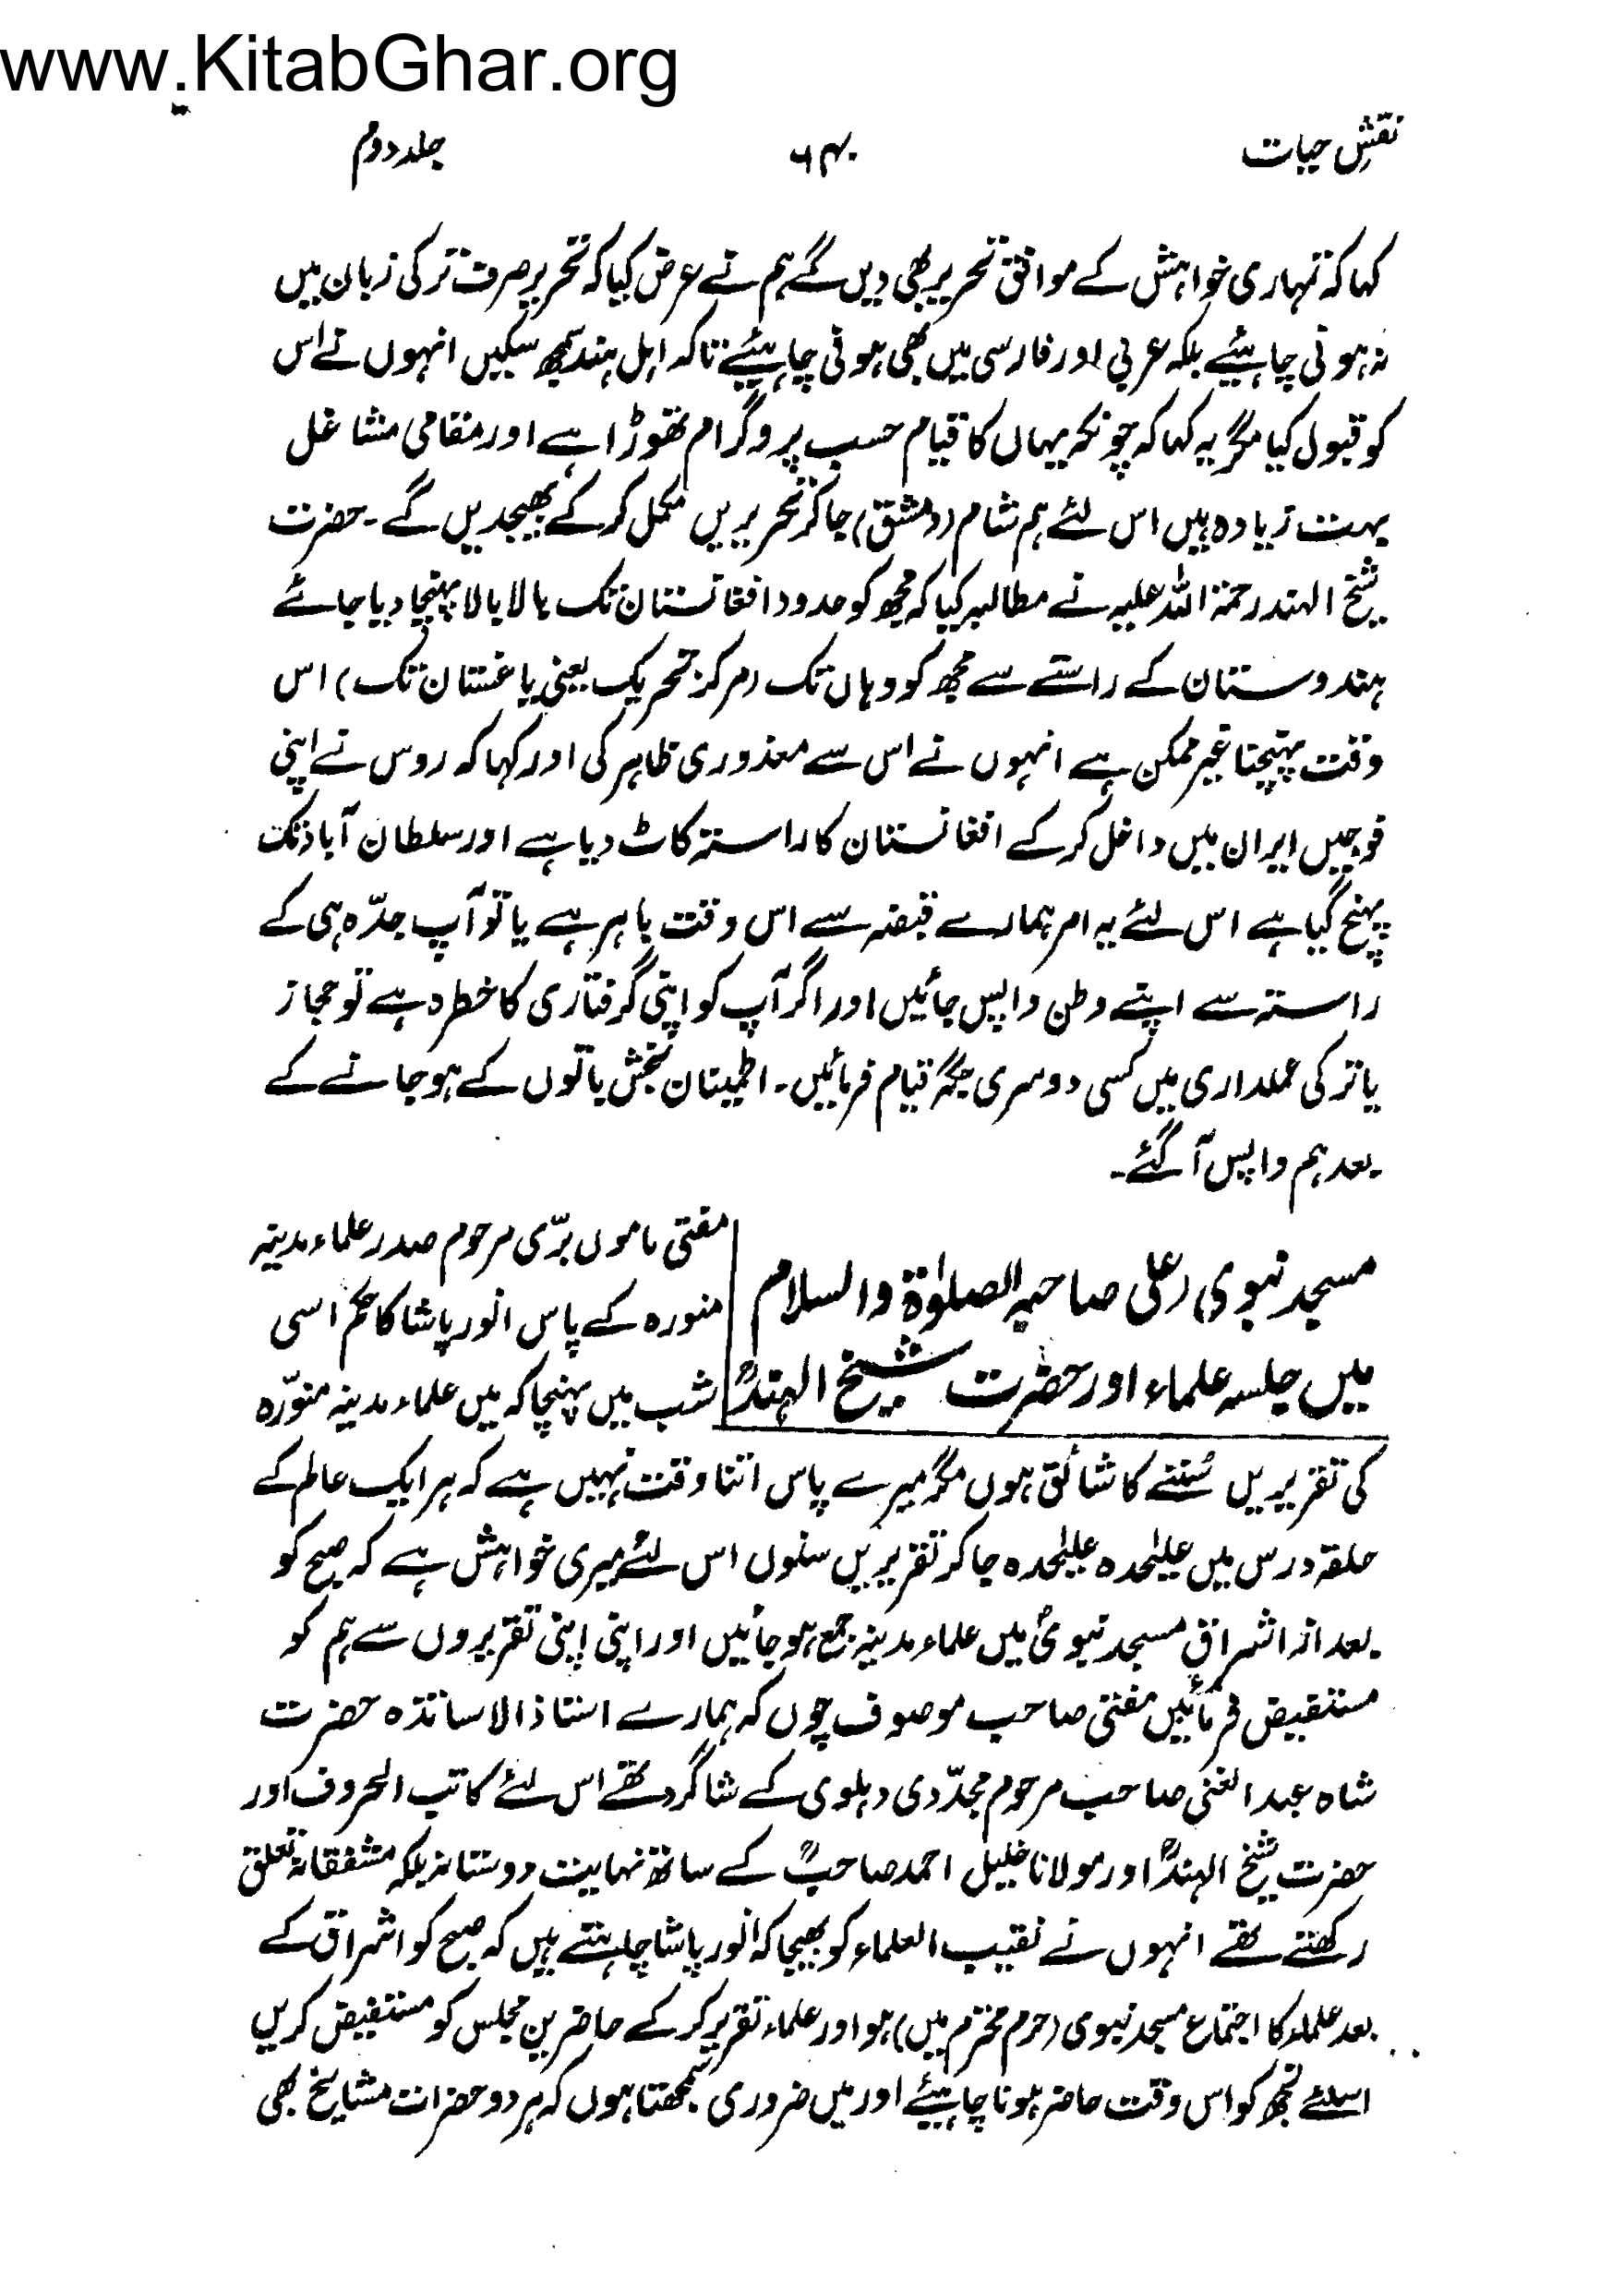 www.KitabGhar.org
نقش حیات ۶۴۰ جلد دوم
کہا کہ تمہاری خواہش کے موافق تحریر بھی دیں گے ہم نے عرض کیا کہ تحریر صرف ترکی زبان میں
نہ ہونی چاہیئے بلکہ عربی اور فارسی میں بھی ہونی چاہیئے تاکہ اہل ہند سمجھ سکیں انہوں نے اس
کو قبول کیا مگر یہ کہا کہ چونکہ یہاں کا قیام حسب پروگرام تھوڑا ہے اور مقامی مشاغل
بہت زیادہ ہیں اس لئے ہم شام (دمشق) جا کر تحریریں مکمل کر کے بھیجدیں گے۔ حضرت
شیخ الہند رحمۃ اللہ علیہ نے مطالبہ کیا کہ مجھ کو حدود افغانستان تک بالا بالا پہنچا دیا جائے
ہندوستان کے راستے سے مجھ کو وہاں تک (مرکز تحریک یعنی یاغستان تک) اس
وقت پہنچنا غیر ممکن ہے انہوں نے اس سے معذوری ظاہر کی اور کہا کہ روس نے اپنی
فوجیں ایران میں داخل کر کے افغانستان کا راستہ کاٹ دیا ہے اور سلطان آباد تک
پہنچ گیا ہے اس لئے یہ امر ہمارے قبضہ سے اس وقت باہر ہے یا تو آپ جدّہ ہی کے
راستہ سے اپنے وطن واپس جائیں اور اگر آپ کو اپنی گرفتاری کا خطرہ ہے تو حجاز
یا ترکی عملداری میں کسی دوسری جگہ قیام فرمائیں۔ اطمینان بخش باتوں کے ہو جانے کے
بعد ہم واپس آ گئے۔
مسجد نبوی (علی صاحبہ الصلوٰۃ والسلام
میں جلسہ علماء اور حضرت شیخ الہندؒ
مفتی ماموں برّی مرحوم صدر علماء مدینہ
منورہ کے پاس انور پاشا کا حکم اسی
شب میں پہنچا کہ میں علماء مدینہ منوّرہ
کی تقریریں سُننے کا شائق ہوں مگر میرے پاس اتنا وقت نہیں ہے کہ ہر ایک عالم کے
حلقہ درس میں علیٰحدہ علیٰحدہ جا کر تقریریں سنوں اس لئے میری خواہش ہے کہ صبح کو
بعد از اشراق مسجد نبویؐ میں علماء مدینہ جمع ہو جائیں اور اپنی اپنی تقریروں سے ہم کو
مستفیض فرمائیں مفتی صاحب موصوف چوں کہ ہمارے استاذ الاساتذہ حضرت
شاہ عبد الغنی صاحب مرحوم مجدّدی دہلوی کے شاگرد تھے اس لئے کاتب الحروف اور
حضرت شیخ الہندؒ اور مولانا خلیل احمد صاحبؒ کے ساتھ نہایت دوستانہ بلکہ مشفقانہ تعلق
رکھتے تھے انہوں نے نقیب العلماء کو بھیجا کہ انور پاشا چاہتے ہیں کہ صبح کو اشراق کے
بعد علماء کا اجتماع مسجد نبوی (حرم محترم میں) ہو اور علماء تقریر کر کے حاضرین مجلس کو مستفیض کریں
اسلئے تجھ کو اس وقت حاضر ہونا چاہیئے اور میں ضروری سمجھتا ہوں کہ ہر دو حضرات مشایخ بھی